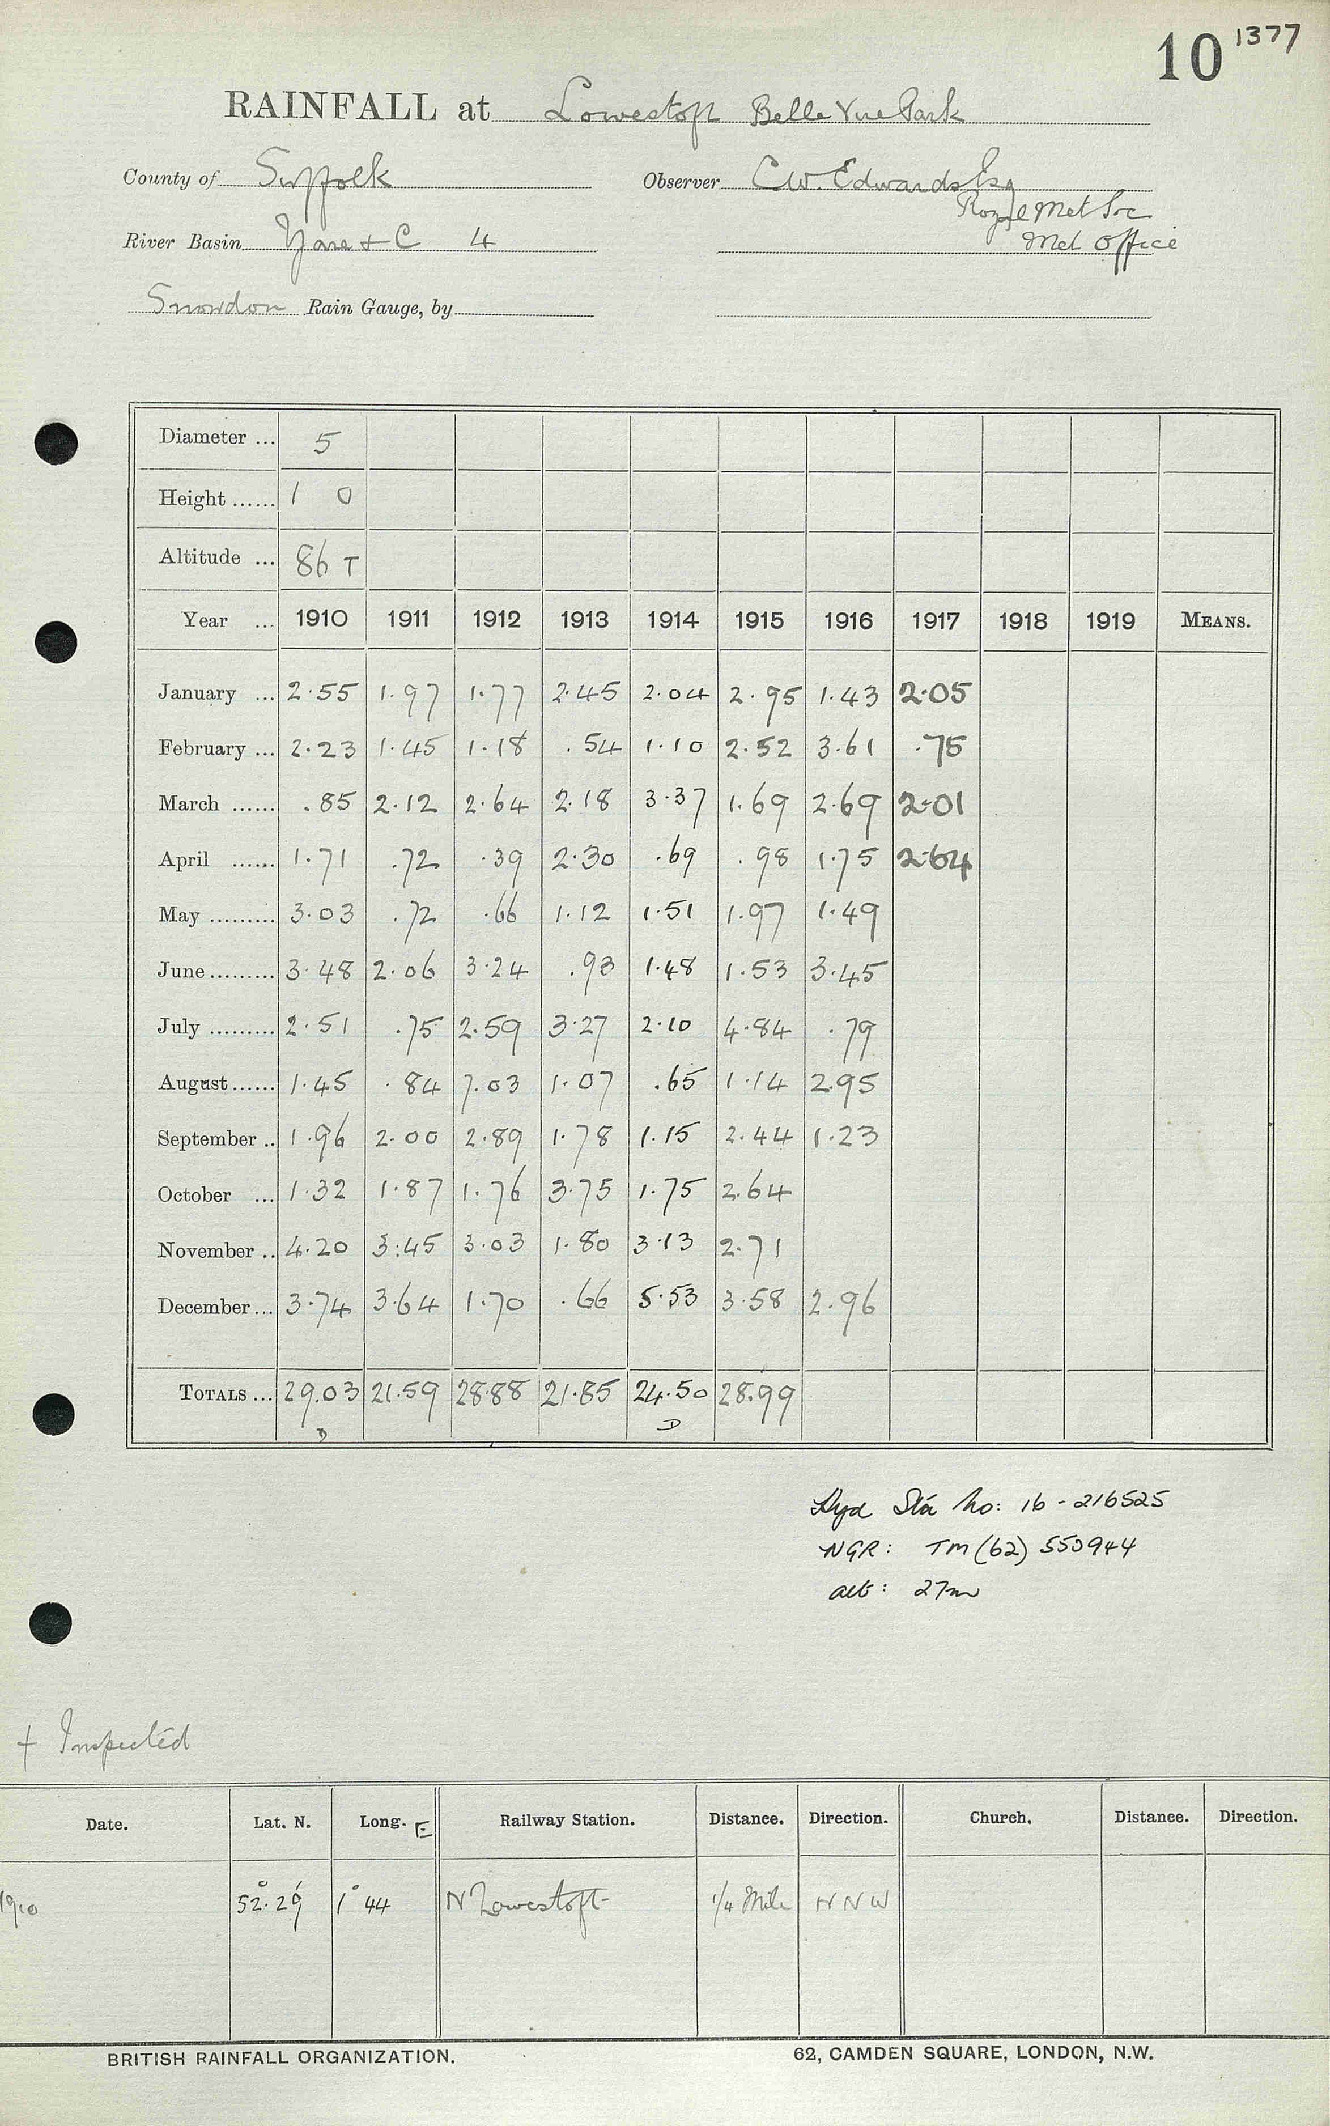 10 1377
RAINFALL at Lowestoft Belle Vue Park
County of Suffolk Observer C.W. Edwards Esq
Royal Met Soc
River Basin Yare + C 4 Met Office
Snowdon Rain Gauge, by
Diameter ... 5
Height ...... 1 0
Altitude ... 86 T
Year ... 1910 1911 1912 1913 1914 1915 1916 1917 1918 1919 MEANS.
January ... 2.55 1.97 1.77 2.45 2.04 2.95 1.43 2.05
February ... 2.23 1.45 1.18 .54 1.10 2.52 3.61 .75
March ...... .85 2.12 2.64 2.18 3.37 1.69 2.69 2.01
April ...... 1.71 .72 .39 2.30 .69 .98 1.75 2.64
May .......... 3.03 .72 .66 1.12 1.51 1.97 1.49
June ......... 3.48 2.06 3.24 .93 1.48 1.53 3.45
July ......... 2.51 .75 2.59 3.27 2.10 4.84 .79
August ...... 1.45 .84 7.03 1.07 .65 1.14 2.95
September .. 1.96 2.00 2.89 1.78 1.15 2.44 1.23
October ... 1.32 1.87 1.76 3.75 1.75 2.64
November .. 4.20 3.45 3.03 1.80 3.13 2.71
December ... 3.74 3.64 1.70 .66 5.53 3.58 2.96
TOTALS ... 29.03 21.59 28.88 21.85 24.50 28.99
D D
Hyd Sta No: 16 - 216525
NGR: TM (62) 553944
alt: 27m
+ Inspected
Date. Lat. N. Long. E Railway Station. Distance. Direction. Church. Distance. Direction.
1910 52° 29' 1° 44 N Lowestoft 1/4 Mile N N W
BRITISH RAINFALL ORGANIZATION. 62, CAMDEN SQUARE, LONDON, N.W.